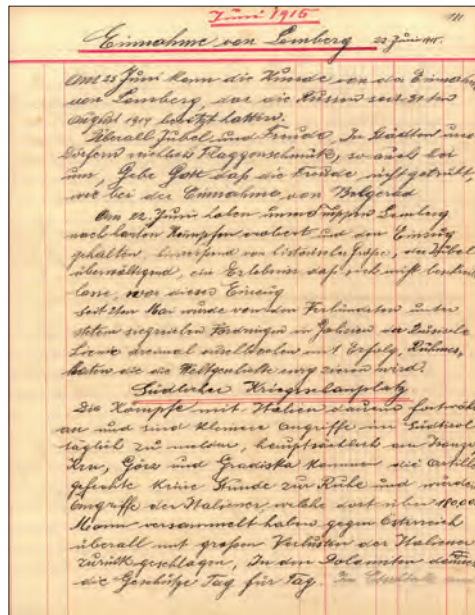 Juni 1915
111
Einnahme von Lemberg 22 Juni 1915.
Am 23 Juni kam die Kunde von der Einnahme
von Lemberg, das die Russen seit 31ten
August 1914 besetzt hatten.
Überall Jubel und Freude, In Städten und
Dörfern reichlich Flaggenschmuck, so auch bei
uns, Gebe Gott daß die Freude nicht getrübt,
wie bei der Einnahme von Belgrad
Am 22. Juni haben unsere Truppen Lemberg
nach harten Kämpfen erobert und den Einzug
gehalten, von historischer Größe, der Jubel
überwältigend, ein Erlebnis daß sich nicht
lasse, war dieser Einzug
seit 2ten Mai wurde von den Verbündeten unter
stetem siegreichen in Galizien die Russische
Linie dreimal mit Erfolg, Ruhmes-
taten die die Weltgeschichte ewig zieren wird.
Südlicher Kriegsschauplatz
Die Kämpfe mit Italien dauern fortwäh
an und sind kleinere Angriffe in Südtirol
täglich zu melden, hauptsächlich am Isonzo
Krn, Görz und Gradiska kommen die Artill
gefechte keine Stunde zur Ruhe und wurden
Angriffe der Italiener, welche dort über
Mann versammelt haben gegen Österreich
überall mit großen Verlusten der Italiener
zurück geschlagen, In den Dolomiten
die Geschütze Tag für Tag.